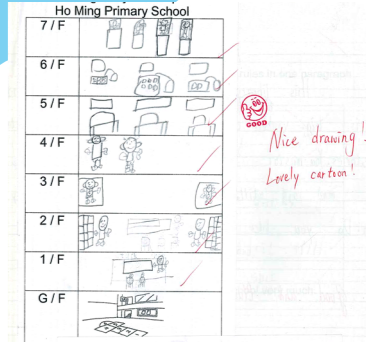 Ho Ming Primary School
7/F
6/F
5/F
4/F
3/F
2/F
1/F
G/F
GOOD
Nice drawing!
Lovely cartoon!